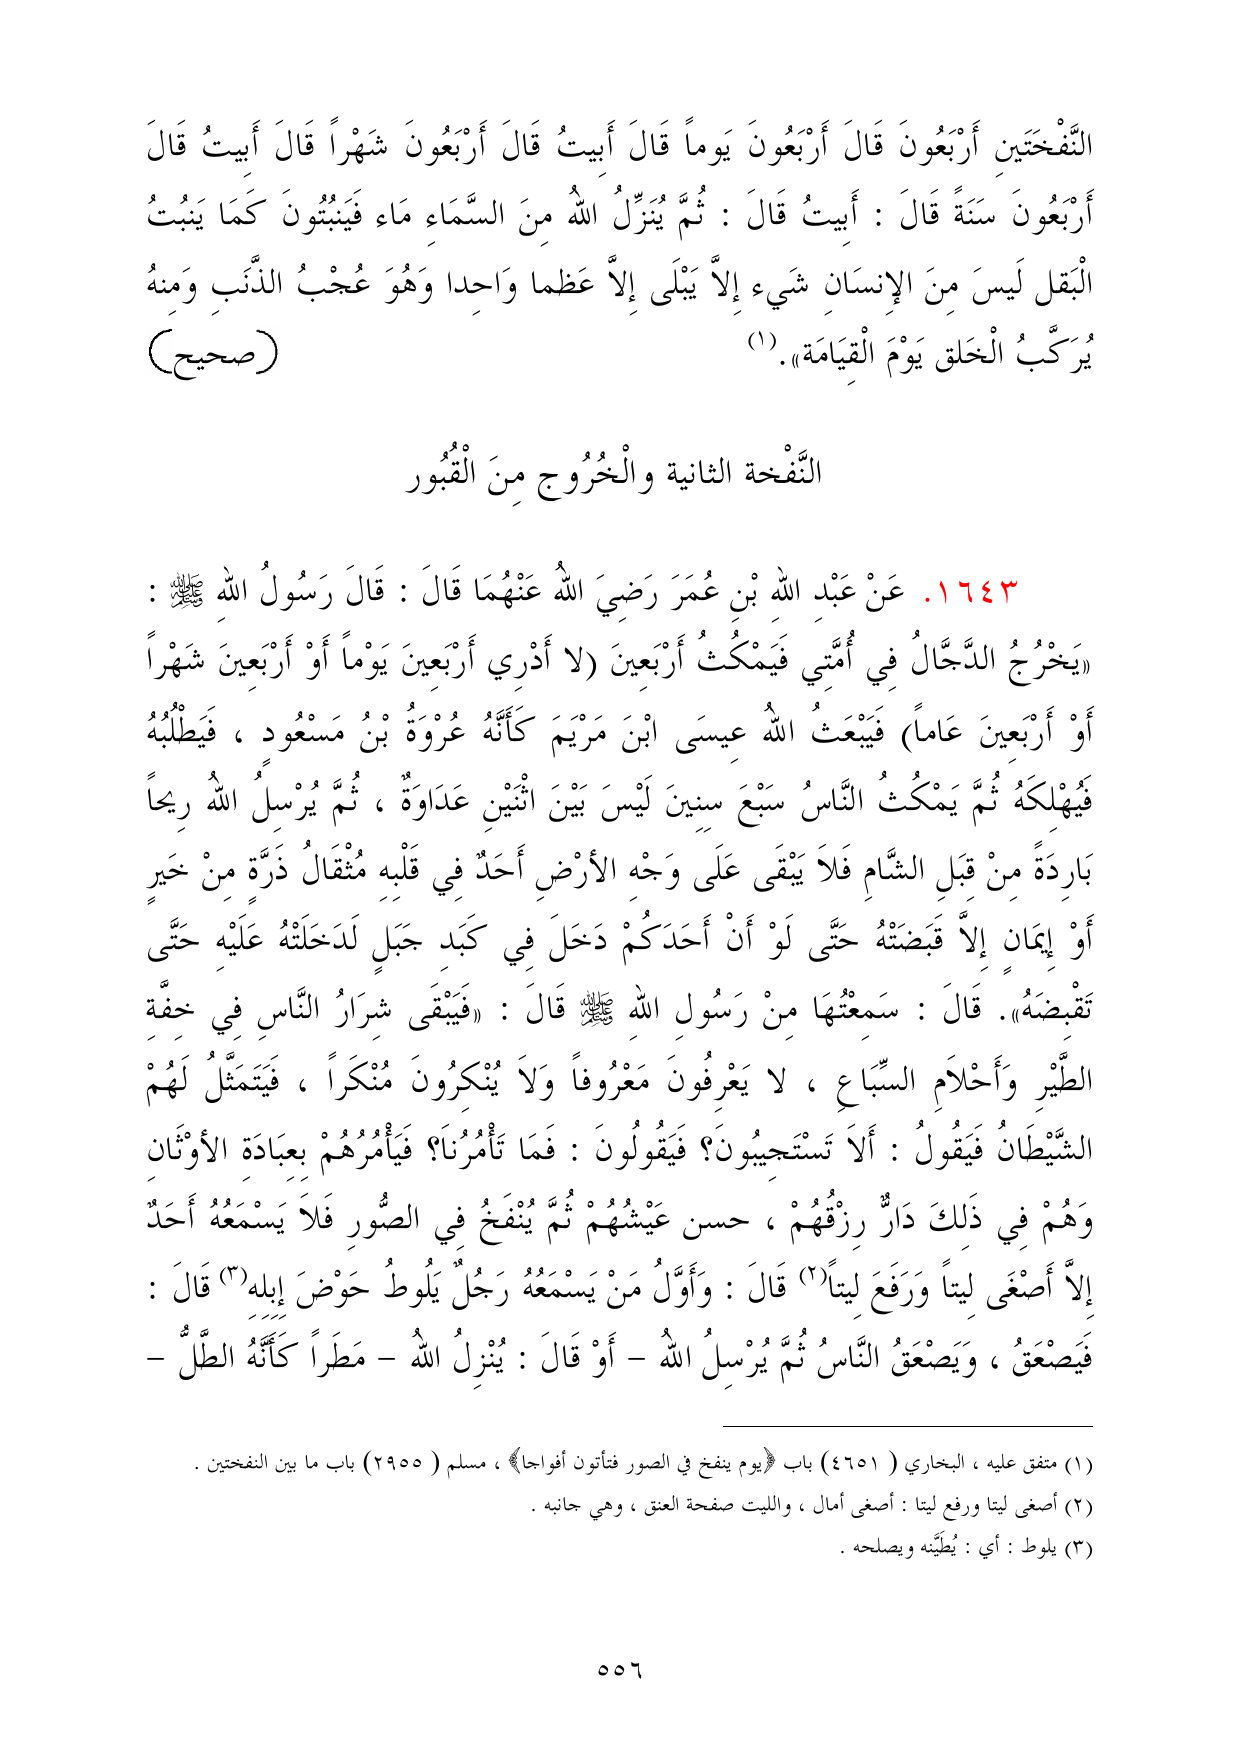 النَّفْخَتَينِ أَرْبَعُونَ قَالَ أَرْبَعُونَ يَوماً قَالَ أَبِيتُ قَالَ أَرْبَعُونَ شَهْراً قَالَ أَبِيتُ قَالَ
أَرْبَعُونَ سَنَةً قَالَ : أَبِيتُ قَالَ : ثُمَّ يُنَزِّلُ اللهُ مِنَ السَّمَاءِ مَاء فَيَنبُتُونَ كَمَا يَنبُتُ
الْبَقل لَيسَ مِنَ الإِنسَانِ شَيء إِلاَّ يَبْلَى إِلاَّ عَظما وَاحِدا وَهُوَ عُجْبُ الذَّنَبِ وَمِنهُ
يُرَكَّبُ الْخَلق يَوْمَ الْقِيَامَة».(١) (صحيح)
النَّفْخة الثانية والْخُرُوج مِنَ الْقُبُور
١٦٤٣. عَنْ عَبْدِ اللهِ بْنِ عُمَرَ رَضِيَ اللهُ عَنْهُمَا قَالَ : قَالَ رَسُولُ اللهِ ﷺ :
«يَخْرُجُ الدَّجَّالُ فِي أُمَّتِي فَيَمْكُثُ أَرْبَعِينَ (لا أَدْرِي أَرْبَعِينَ يَوْماً أَوْ أَرْبَعِينَ شَهْراً
أَوْ أَرْبَعِينَ عَاماً) فَيَبْعَثُ اللهُ عِيسَى ابْنَ مَرْيَمَ كَأَنَّهُ عُرْوَةُ بْنُ مَسْعُودٍ ، فَيَطْلُبُهُ
فَيُهْلِكَهُ ثُمَّ يَمْكُثُ النَّاسُ سَبْعَ سِنِينَ لَيْسَ بَيْنَ اثْنَيْنِ عَدَاوَةٌ ، ثُمَّ يُرْسِلُ اللهُ رِيحاً
بَارِدَةً مِنْ قِبَلِ الشَّامِ فَلاَ يَبْقَى عَلَى وَجْهِ الأَرْضِ أَحَدٌ فِي قَلْبِهِ مُثْقَالُ ذَرَّةٍ مِنْ خَيرٍ
أَوْ إِيمَانٍ إِلاَّ قَبَضَتْهُ حَتَّى لَوْ أَنْ أَحَدَكُمْ دَخَلَ فِي كَبَدِ جَبَلٍ لَدَخَلَتْهُ عَلَيْهِ حَتَّى
تَقْبِضَهُ». قَالَ : سَمِعْتُهَا مِنْ رَسُولِ اللهِ ﷺ قَالَ : «فَيَبْقَى شِرَارُ النَّاسِ فِي خِفَّةِ
الطَّيْرِ وَأَحْلاَمِ السِّبَاعِ ، لا يَعْرِفُونَ مَعْرُوفاً وَلاَ يُنْكِرُونَ مُنْكَراً ، فَيَتَمَثَّلُ لَهُمْ
الشَّيْطَانُ فَيَقُولُ : أَلاَ تَسْتَجِيبُونَ؟ فَيَقُولُونَ : فَمَا تَأْمُرُنَا؟ فَيَأْمُرُهُمْ بِعِبَادَةِ الأَوْثَانِ
وَهُمْ فِي ذَلِكَ دَارٌّ رِزْقُهُمْ ، حسن عَيْشُهُمْ ثُمَّ يُنْفَخُ فِي الصُّورِ فَلاَ يَسْمَعُهُ أَحَدٌ
إِلاَّ أَصْغَى لِيتاً وَرَفَعَ لِيتاً(٢) قَالَ : وَأَوَّلُ مَنْ يَسْمَعُهُ رَجُلٌ يَلُوطُ حَوْضَ إِبِلِهِ(٣) قَالَ :
فَيَصْعَقُ ، وَيَصْعَقُ النَّاسُ ثُمَّ يُرْسِلُ اللهُ – أَوْ قَالَ : يُنْزِلُ اللهُ – مَطَراً كَأَنَّهُ الطَّلُّ –
(١) متفق عليه ، البخاري ( ٤٦٥١) باب ﴿يوم ينفخ في الصور فتأتون أفواجا﴾ ، مسلم ( ٢٩٥٥) باب ما بين النفختين .
(٢) أصغى ليتا ورفع ليتا : أصغى أمال ، والليت صفحة العنق ، وهي جانبه .
(٣) يلوط : أي : يُطَيِّنه ويصلحه .
٥٥٦